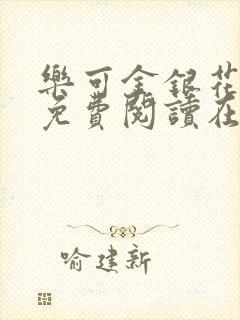 樂可金銀花
免費閱讀在
喻建新